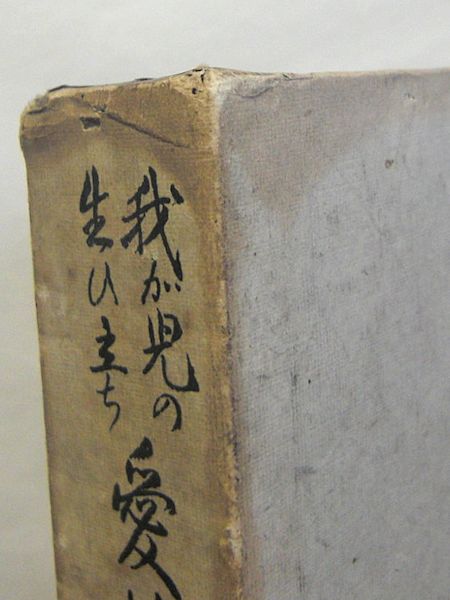 我が児の
生ひ立ち
愛